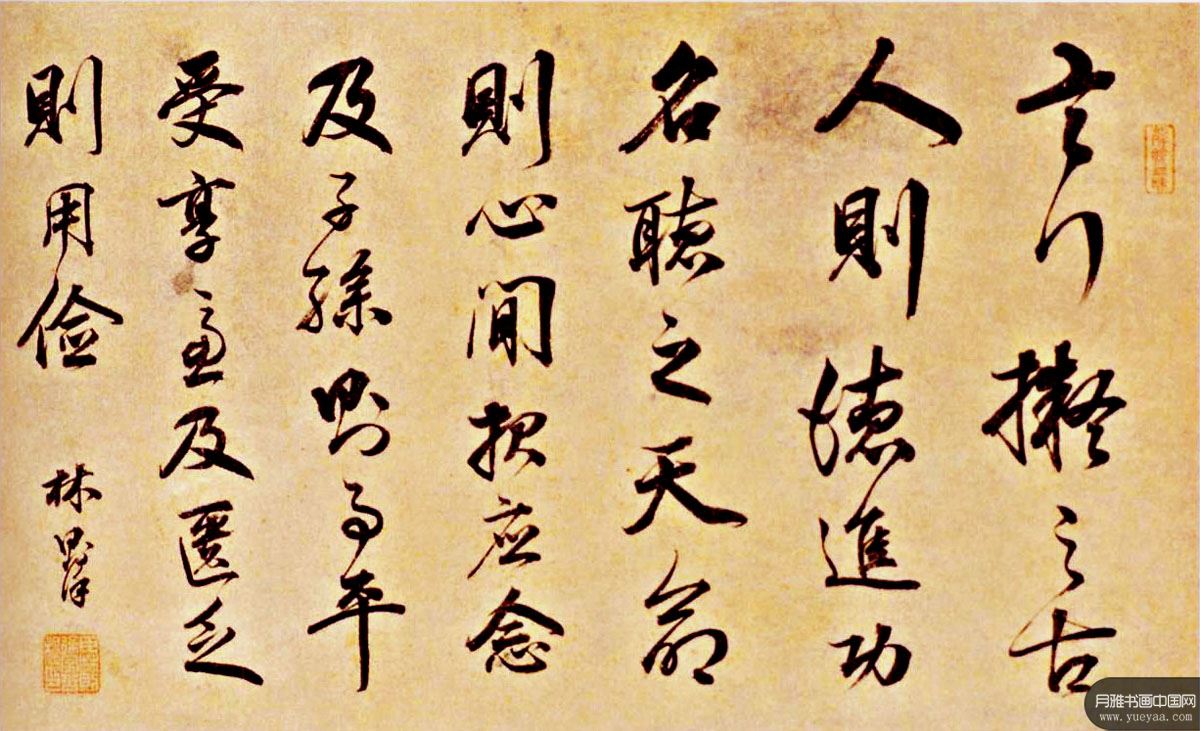 言行擬之古
人則德進功
名聽之天命
則心閒報應念
及子孫則事平
受享慮及匱乏
則用儉
林則徐
月雅书画中国网
www.yueyaa.com